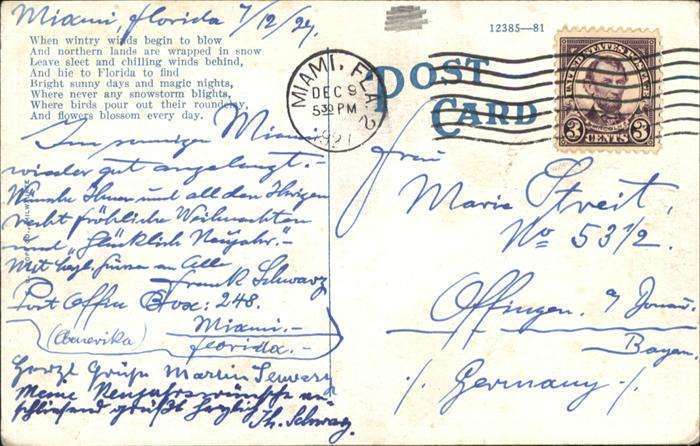 Miami, Florida 7/12/27.
When wintry winds begin to blow
And northern lands are wrapped in snow
Leave sleet and chilling winds behind,
And hie to Florida to find
Bright sunny days and magic nights,
Where never any snowstorm blights,
Where birds pour out their roundelay,
And flowers blossom every day.
12385—81
POST
CARD
MIAMI, FLA.
DEC 9
5 30 PM
1927
2
UNITED STATES POSTAGE
3 CENTS 3
Im sonnigen Miami
wieder gut angelangt.-
Wünsche Ihnen und all den Ihrigen
recht fröhliche Weihnachten
und "Glücklich Neujahr".-
Mit hzgl. Grüssen an Alle
Frank Schwarz
Post Office Box: 248.
Miami.-
(Amerika)
Florida.-
Herzl Grüße Martin Schwarz
Meine Neujahrswünsche an-
schließend grüßt herzlich Th. Schwarz
Frau
Marie Streit,
No 53 1/2.
Offingen a/ Donau
Bayern
./. Germany ./.